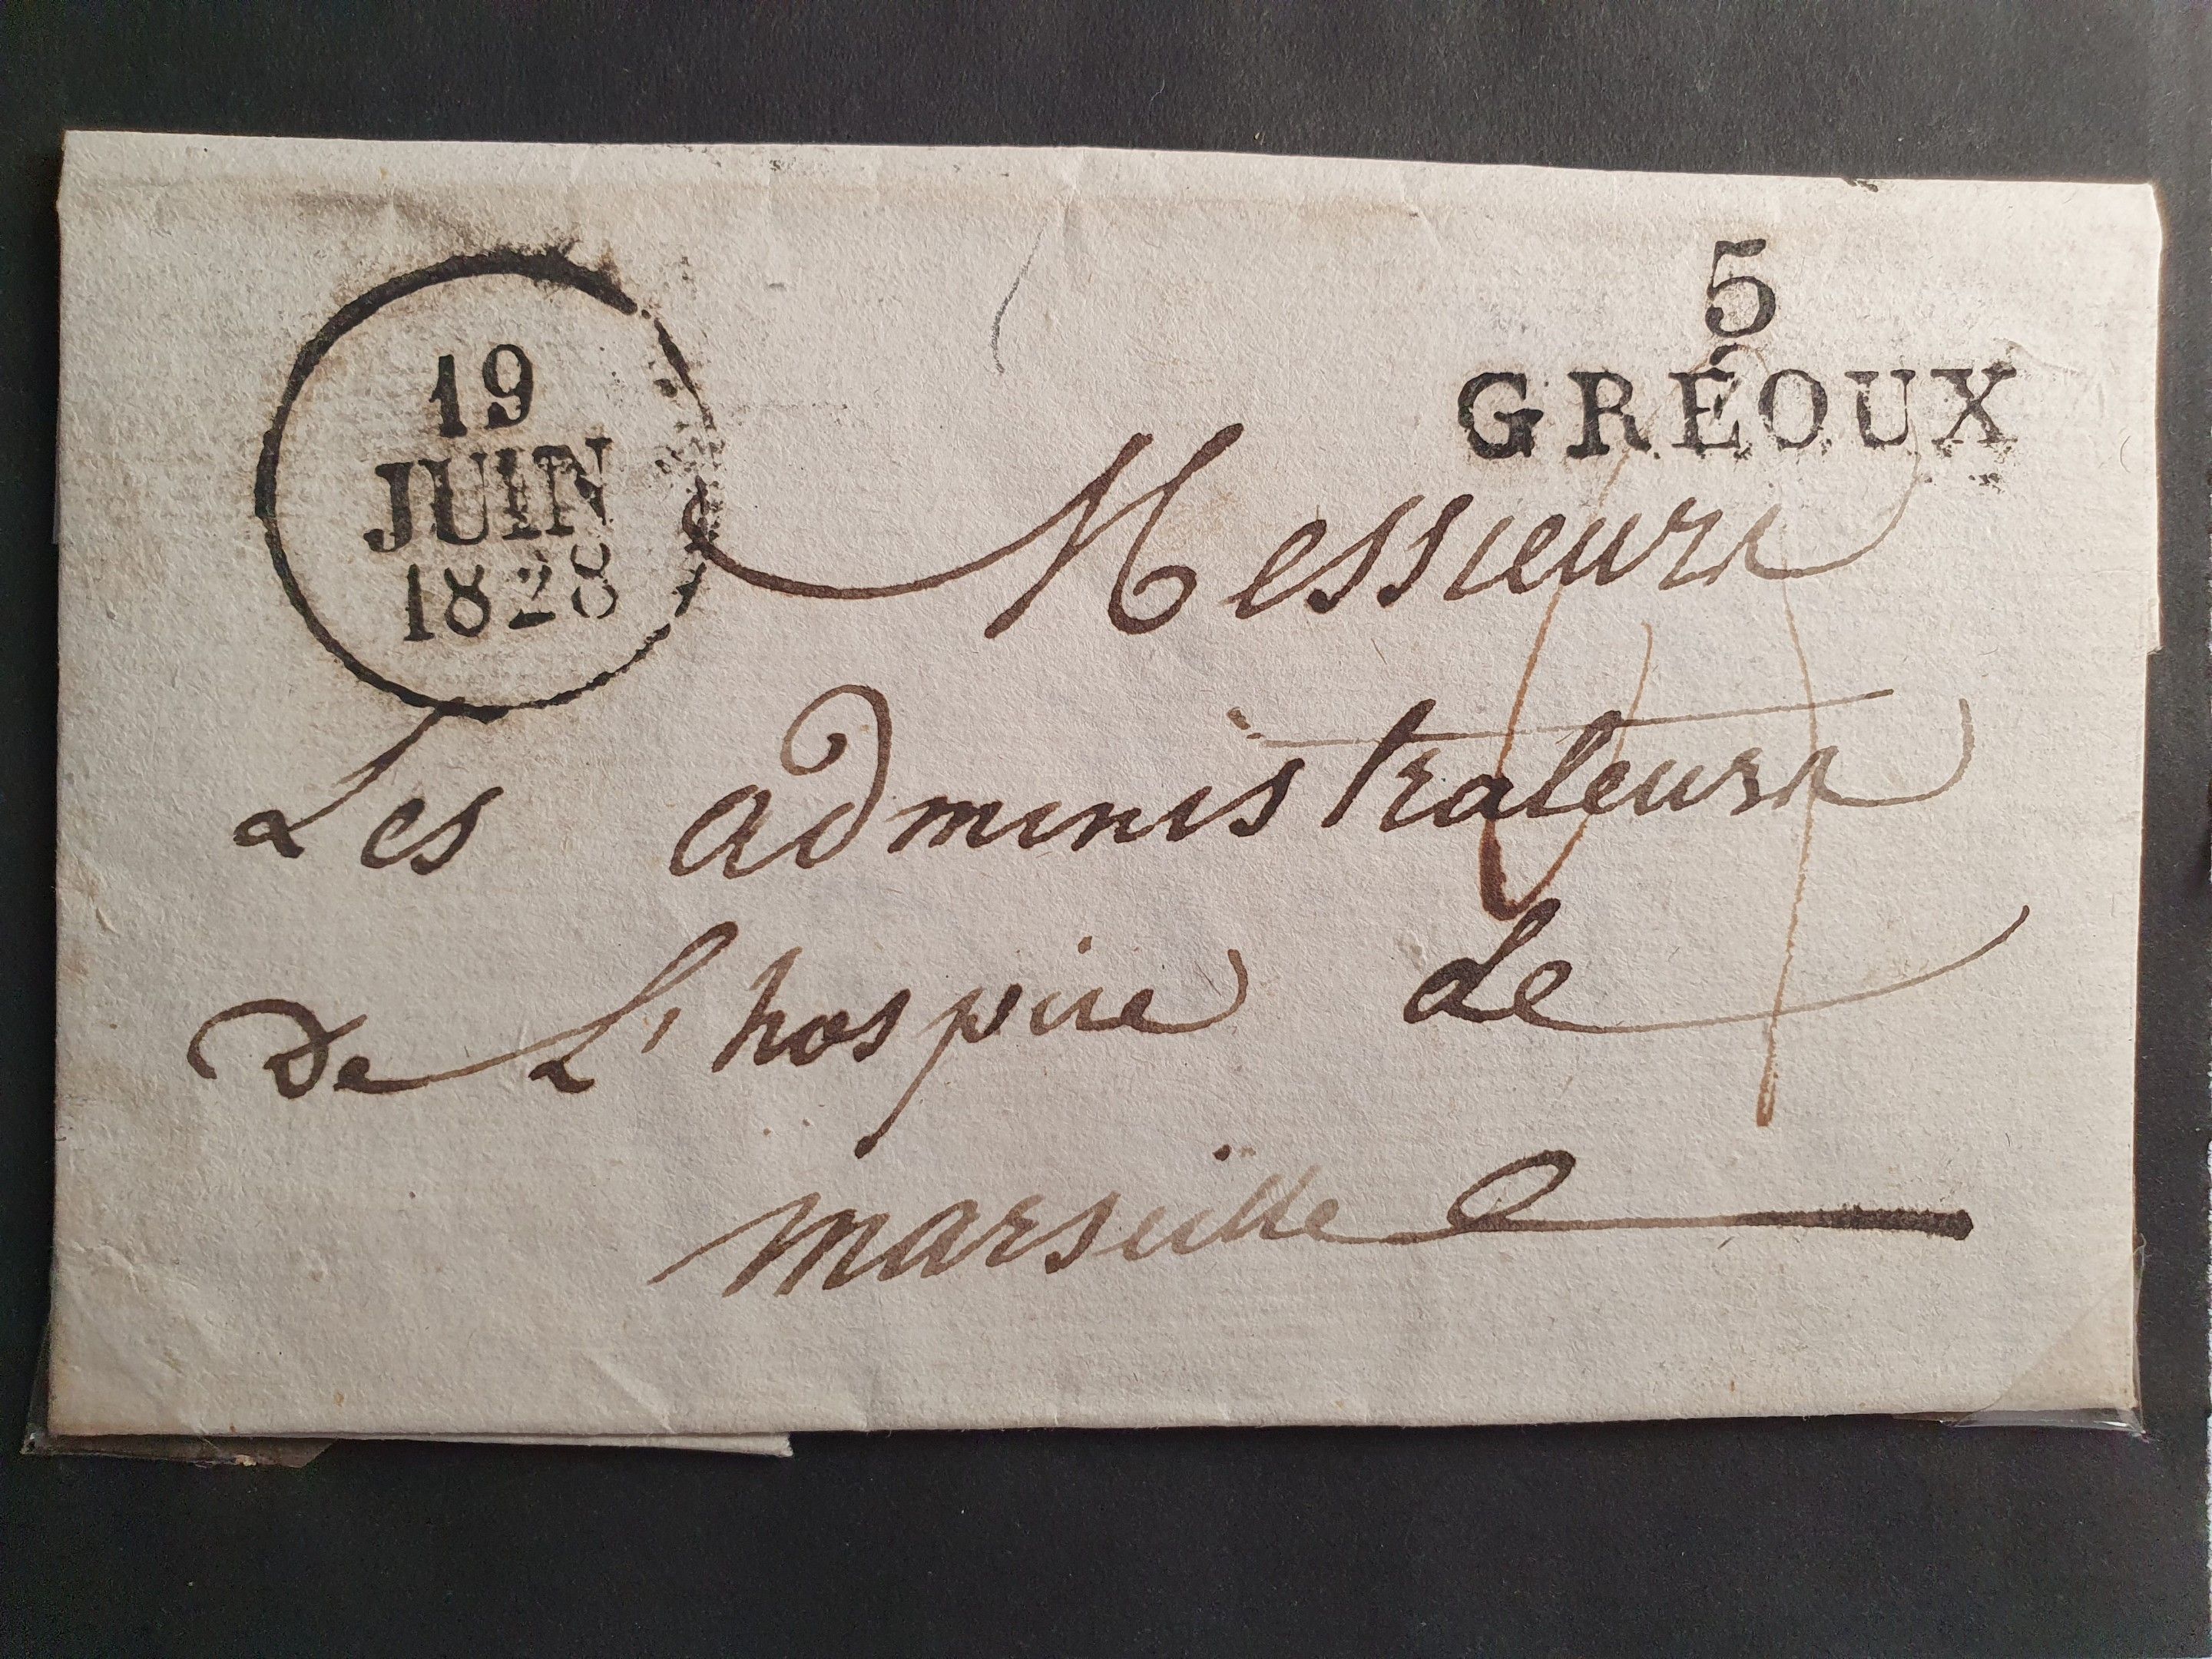 19
JUIN
1828
5
GRÉOUX
Messieurs
Les administrateurs
de L'hospice de
marseille
4